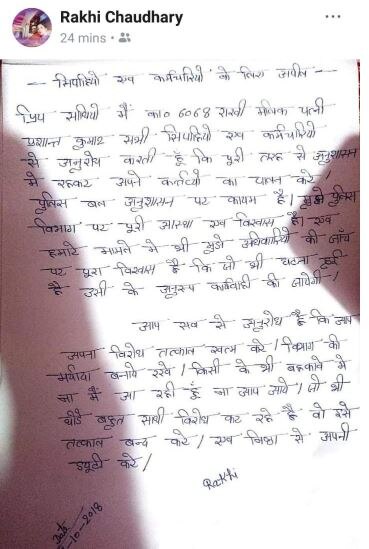 Rakhi Chaudhary
24 mins
— सिपाहियो एव कर्मचारियो के लिए अपील —
प्रिय साथियो मैं का० 6068 राखी मलिक पत्नी
प्रशान्त कुमार सभी सिपाहियो एव कर्मचारियो
से अनुरोध करती हूँ कि पूरी तरह से अनुशासन
मे रहकर अपने कर्तव्यो का पालन करे।
पुलिस बल अनुशासन पर कायम है। मुझे पुलिस
विभाग पर पूरी आस्था एव विश्वास है। एव
हमारे मामले मे भी मुझे अधिकारियो की जाँच
पर पूरा विश्वास है कि जो भी घटना हुई
है उसी के अनुरूप कार्यवाही की जायेगी।
आप सब से अनुरोध है कि आप
अपना विरोध तत्काल खत्म करे। विभाग की
मर्यादा बनाये रखे। किसी के भी बहकावे मे
ना मैं आ रही हूँ ना आप आये। जो भी
थोडे बहुत साथी विरोध कर रहे है वो इसे
तत्काल बन्द करे। एव निष्ठा से अपनी
ड्यूटी करे।
Rakhi
Date
-10-2018